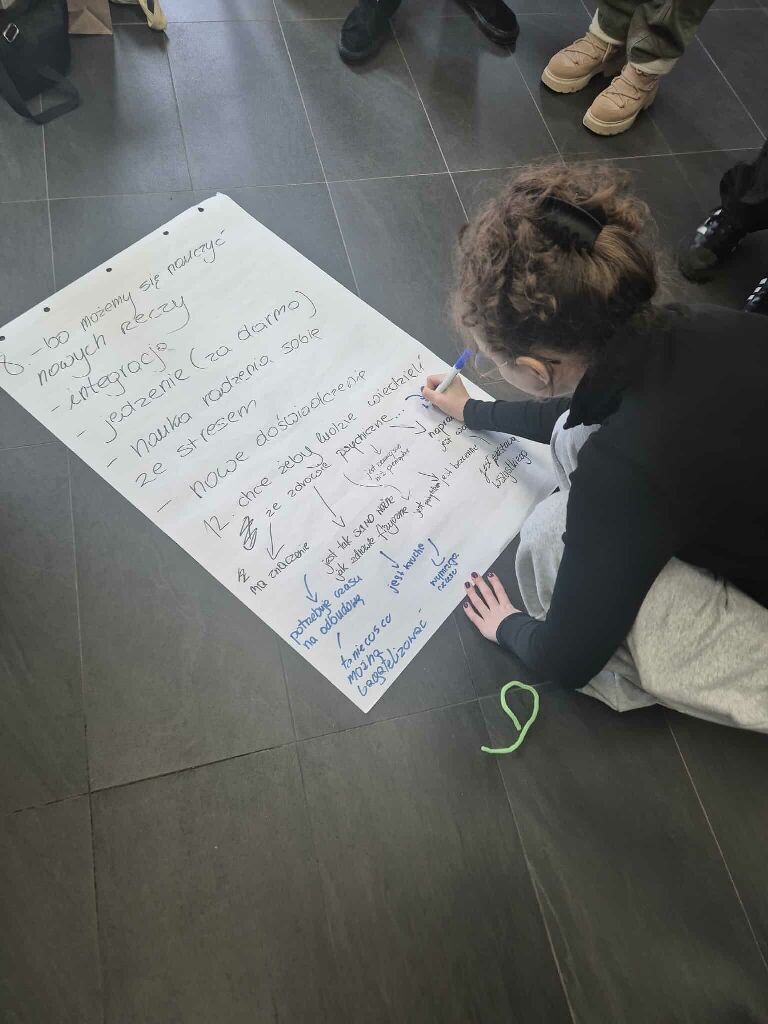 8 - bo możemy się nauczyć
nowych rzeczy
- integracja
- jedzenie (za darmo)
- nauka radzenia sobie
ze stresem
- nowe doświadczenie
12. chcę żeby ludzie wiedzieli
że zdrowie psychiczne...
ma znaczenie
jest tak samo ważne
jak zdrowie fizyczne
jest
jest podstawą
wszystkiego
potrzebuje czasu
na odbudowę
to nie coś co
można
bagatelizować
jest kruche
wymaga
czasu